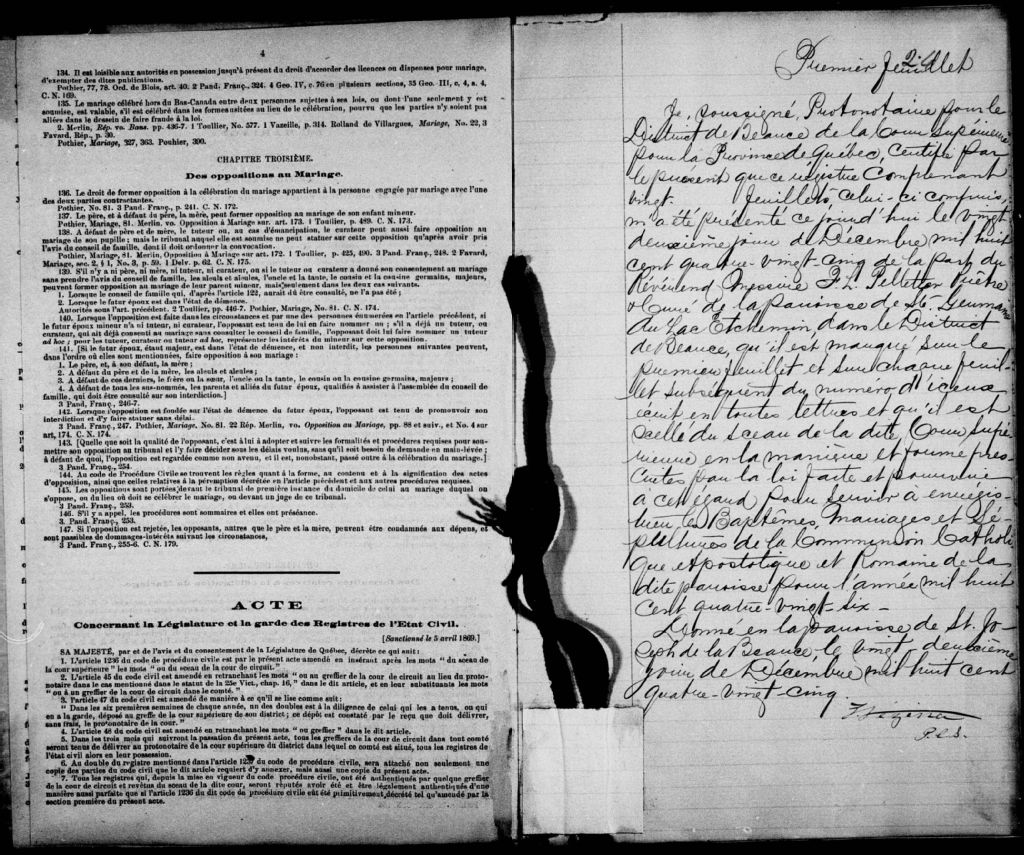 4
134. Il est loisible aux autorités en possession jusqu'à présent du droit d'accorder des licences ou dispenses pour mariage,
d'exempter des dites publications.
Pothier, 77, 78. Ord. de Blois, art. 40. 2 Pand. Franç., 324. 4 Geo. IV, c. 76 en plusieurs sections, 35 Geo. III, c. 4, s. 4.
C. N. 169.
135. Le mariage célébré hors du Bas-Canada entre deux personnes sujettes à ses lois, ou dont l'une seulement y est
soumise, est valable, s'il est célébré dans les formes usitées au lieu de la célébration, pourvu que les parties n'y soient pas
allées dans le dessein de faire fraude à la loi.
2. Merlin, Rép. vo. Bans. pp. 436-7. 1 Toullier, No. 577. 1 Vazeille, p. 314. Rolland de Villargues, Mariage, No. 22, 3
Favard, Rép., p. 30.
Pothier, Mariage, 327, 363. Pouhier, 390.
CHAPITRE TROISIÈME.
Des oppositions au Mariage.
136. Le droit de former opposition à la célébration du mariage appartient à la personne engagée par mariage avec l'une
des deux parties contractantes.
Pothier, No. 81. 3 Pand. Franç., p. 241. C. N. 172.
137. Le père, et à défaut du père, la mère, peut former opposition au mariage de son enfant mineur.
Pothier, Mariage, 81. Merlin. vo. Opposition à Mariage sur. art. 173. 1 Toullier, p. 489. C. N. 173.
138. A défaut de père et de mère, le tuteur ou, au cas d'émancipation, le curateur peut aussi faire opposition au
mariage de son pupille; mais le tribunal auquel elle est soumise ne peut statuer sur cette opposition qu'après avoir pris
l'avis du conseil de famille, dont il doit ordonner la convocation.
Pothier, Mariage, 81. Merlin, Opposition à Mariage sur art. 172. 1 Toullier, p. 425, 490. 3 Pand. Franç., 248. 2 Favard,
Mariage, sec. 2, § 1, No. 3, p. 59. 1 Delv. p. 62. C. N. 175.
139. S'il n'y a ni père, ni mère, ni tuteur, ni curateur, ou si le tuteur ou curateur a donné son consentement au mariage
sans prendre l'avis du conseil de famille, les aïeuls et aïeules, l'oncle et la tante, le cousin et la cousine germains, majeurs,
peuvent former opposition au mariage de leur parent mineur, mais seulement dans les deux cas suivants.
1. Lorsque le conseil de famille qui, d'après l'article 122, aurait du être consulté, ne l'a pas été;
2. Lorsque le futur époux est dans l'état de démence.
Autorités sous l'art. précédent. 2 Toullier, pp. 446-7. Pothier, Mariage, No. 81. C. N. 174.
140. Lorsque l'opposition est faite dans les circonstances et par une des personnes énumérées en l'article précédent, si
le futur époux mineur n'a ni tuteur, ni curateur, l'opposant est tenu de lui en faire nommer un; s'il a déjà un tuteur, ou
curateur, qui ait déjà consenti au mariage sans consulter le conseil de famille, l'opposant doit lui faire nommer un tuteur
ad hoc; pour les tuteur, curateur ou tuteur ad hoc, représenter les intérêts du mineur sur cette opposition.
141. [Si le futur époux, étant majeur, est dans l'état de démence, et non interdit, les personnes suivantes peuvent,
dans l'ordre où elles sont mentionnées, faire opposition à son mariage:
1. Le père, et, à son défaut, la mère;
2. A défaut du père et de la mère, les aïeuls et aïeules;
3. A défaut de ces derniers, le frère ou la sœur, l'oncle ou la tante, le cousin ou la cousine germains, majeurs;
4. A défaut de tous les sus-nommés, les parents et alliés du futur époux, qualifiés à assister à l'assemblée du conseil de
famille, qui doit être consulté sur son interdiction.]
3 Pand. Franç., 246-7.
142. Lorsque l'opposition est fondée sur l'état de démence du futur époux, l'opposant est tenu de promouvoir son
interdiction et d'y faire statuer sans délai.
3 Pand. Franç., 247. Pothier, Mariage, No. 81. 22 Rép. Merlin, vo. Opposition au Mariage, pp. 88 et suiv., et No. 4 sur
art, 174. C. N. 174.
143. [Quelque soit la qualité de l'opposant, c'est à lui à adopter et suivre les formalités et procédures requises pour sou-
mettre son opposition au tribunal et l'y faire décider sous les délais voulus, sans qu'il soit besoin de demande en main-levée;
à défaut de quoi, l'opposition est regardée comme non avenu, et il est, nonobstant, passé outre à la célébration du mariage.]
3 Pand. Franç., 254.
144. Au code de Procédure Civile se trouvent les règles quant à la forme, au contenu et à la signification des actes
d'opposition, ainsi que celles relatives à la péremption décrétée en l'article précédent et aux autres procédures requises.
145. Les oppositions sont portées devant le tribunal de première instance du domicile de celui au mariage duquel on
s'oppose, ou du lieu où doit se célébrer le mariage, ou devant un juge de ce tribunal.
3 Pand. Franç., 253.
146. S'il y a appel, les procédures sont sommaires et elles ont préséance.
3. Pand. Franç., 253.
147. Si l'opposition est rejetée, les opposants, autres que le père et la mère, peuvent être condamnés aux dépens, et
sont passibles de dommages-intérêts suivant les circonstances,
3 Pand. Franç., 255-6. C. N. 179.
ACTE
Concernant la Législature et la garde des Registres de l'Etat Civil.
[Sanctionné le 5 avril 1869.]
SA MAJESTÉ, par et de l'avis et du consentement de la Législature de Québec, décrète ce qui suit:
1. L'article 1236 du code de procédure civile est par le présent acte amendé en insérant après les mots "du sceau de
la cour supérieure" les mots "ou du sceau de la cour de circuit."
2. L'article 45 du code civil est amendé en retranchant les mots "ou au greffier de la cour de circuit au lieu du proto-
notaire dans le cas mentionné dans le statut de la 25e Vict., chap. 16," dans le dit article, et en leur substituants les mots
"ou à un greffier de la cour de circuit dans le comté."
3. l'article 47 du code civil est amendé de manière à ce qu'il se lise comme suit:
"Dans les six premières semaines de chaque année, un des doubles est à la diligence de celui qui les a tenus, ou qui
en a la garde, déposé au greffe de la cour supérieure de son district; ce dépôt est constaté par le reçu que doit délivrer,
sans frais, le protonotaire de la cour."
4. L'article 48 du code civil est amendé en retranchant les mots "ou greffier" dans le dit article.
5. Dans les trois mois qui suivront la passation du présent acte, tous les greffiers de la cour de circuit dans tout comté
seront tenus de délivrer au protonotaire de la cour supérieure du district dans lequel ce comté est situé, tous les registres de
l'état civil alors en leur possession.
6. Au double du registre mentionné dans l'article 1236 du code de procédure civile, sera attaché non seulement une
copie des parties du code civil que le dit article requiert d'y annexer, mais aussi une copie du présent acte.
7. Tous les registres qui, depuis la mise en vigueur du code procédure civile, ont été authentiqués par quelque greffier
de la cour de circuit et revêtus du sceau de la dite cour, seront réputés avoir été et être légalement authentiqués d'une
manière aussi parfaite que si l'article 1236 du dit code de procédure civile eût été primitivement décrété tel qu'amendé par la
section première du présent acte.
Premier feuillet
Je, soussigné, Protonotaire pour le
District de Beauce de la Cour Supérieure
pour la Province de Québec, Certifie par
le présent que ce régistre Comprenant
vingt- feuillets, celui-ci compris,
m'a été présenté ce jourd'hui le vingt
deuxième jour de Décembre mil huit
cent quatre-vingt-cinq de la part du
Révérend Messire F. L. Pelletier Prêtre
& Curé de la paroisse de St. Germain
du Lac Etchemin, dans le District
de Beauce, qu'il est marqué sur le
premier feuillet et sur chaque feuil-
let subséquent du numéro d'iceux
écrit en toutes lettres et qu'il est
scellé du sceau de la dite Cour Supé-
rieure en la manière et forme pres-
crites par la loi faite et pourvue
à cet égard pour servir à enregis-
trer les Baptêmes, mariages et Sé-
pultures de la Communion Catholi-
que Apostolique et Romaine de la
dite paroisse pour l'année mil huit
cent quatre-vingt-six -
Donné en la paroisse de St. Jo-
seph de la Beauce le vingt-deuxième
jour de Décembre mil huit cent
quatre-vingt cinq
P.C.S.